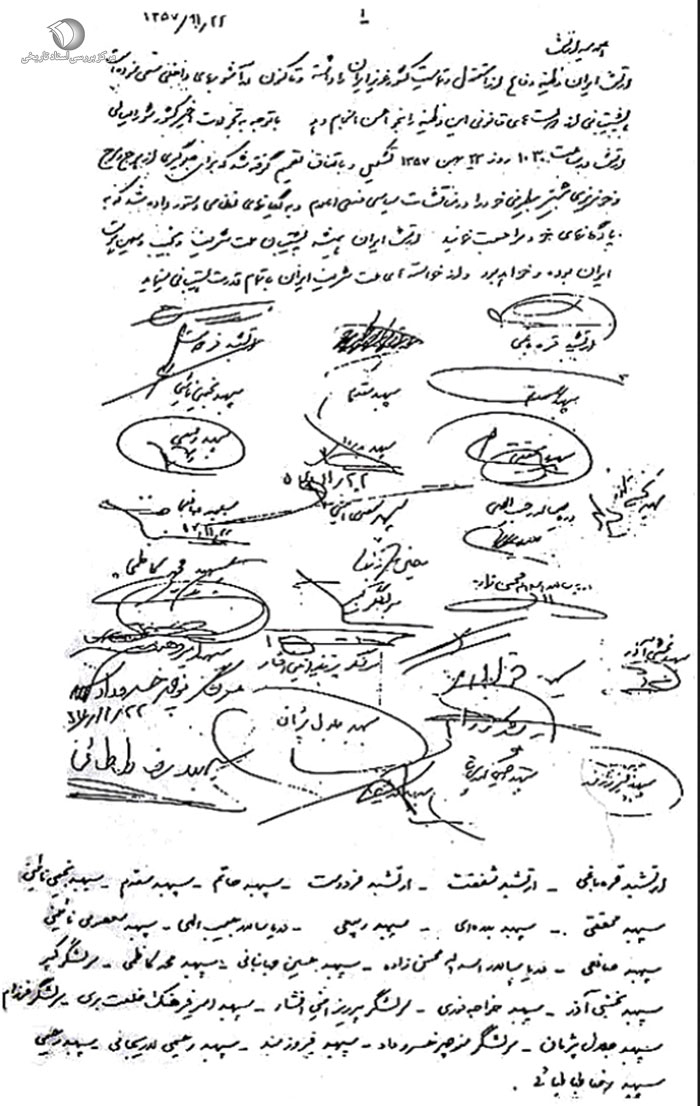 ۱
۱۳۵۷/۱۱/۲۲
مرکز بررسی اسناد تاریخی
ارتش ایران وظیفه دفاع از استقلال و تمامیت کشور عزیز ایران را داشته و تاکنون در آشوبهای داخلی سعی نموده است
با پشتیبانی از دولت‌های قانونی این وظیفه را بنحو احسن انجام دهد با توجه به تحولات اخیر کشور شورای عالی
ارتش در ساعت ۱۰:۳۰ روز ۲۲ بهمن ۱۳۵۷ تشکیل و باتفاق تصمیم گرفته شد که برای جلوگیری از هرج و مرج
و خونریزی بیشتر بیطرفی خود را در مناقشات سیاسی فعلی اعلام و به یگانهای نظامی دستور داده شد که به
پادگانهای خود مراجعت نمایند ارتش ایران همیشه پشتیبان ملت شریف و نجیب و میهن پرست
ایران بوده و خواهد بود و از خواسته‌های ملت شریف ایران با تمام قدرت پشتیبانی مینماید
ارتشبد قره‌باغی
سپهبد مقدم
سپهبد نجیمی نائینی
سپهبد ربیعی
۲۲/۱۱/۵۷
دریاسالار حبیب اللهی
سپهبد معصومی نائینی
سپهبد صانعی
سپهبد محمد کاظمی
دریاسالار اسداله محسن زاده
سپهبد بخشی آذر
سرلشگر پرویز امینی افشار
سرلشگر منوچهر خسروداد
۵۷/۱۱/۲۲
سپهبد جلال پژمان
سپهبد فیروزمند
سپهبد رضا طباطبائی
ارتشبد قره‌باغی - ارتشبد شفقت - ارتشبد فردوست - سپهبد حاتم - سپهبد مقدم - سپهبد نجیمی نائینی
سپهبد محققی - سپهبد بدره‌ای - سپهبد ربیعی - دریاسالار حبیب الهی - سپهبد معصومی نائینی
سپهبد صانعی - دریاسالار اسداله محسن زاده - سپهبد حسین جهانبانی - سپهبد محمد کاظمی - سرلشگر کبیر
سپهبد بخشی آذر - سپهبد خواجه نوری - سرلشگر پرویز امینی افشار - سپهبد امیر فرهنگ خلعت بری - سرلشگر فرزام
سپهبد جلال پژمان - سرلشگر منوچهر خسروداد - سپهبد فیروزمند - سپهبد رحیمی لاریجانی - سپهبد رحیمی
سپهبد رضا طباطبائی .